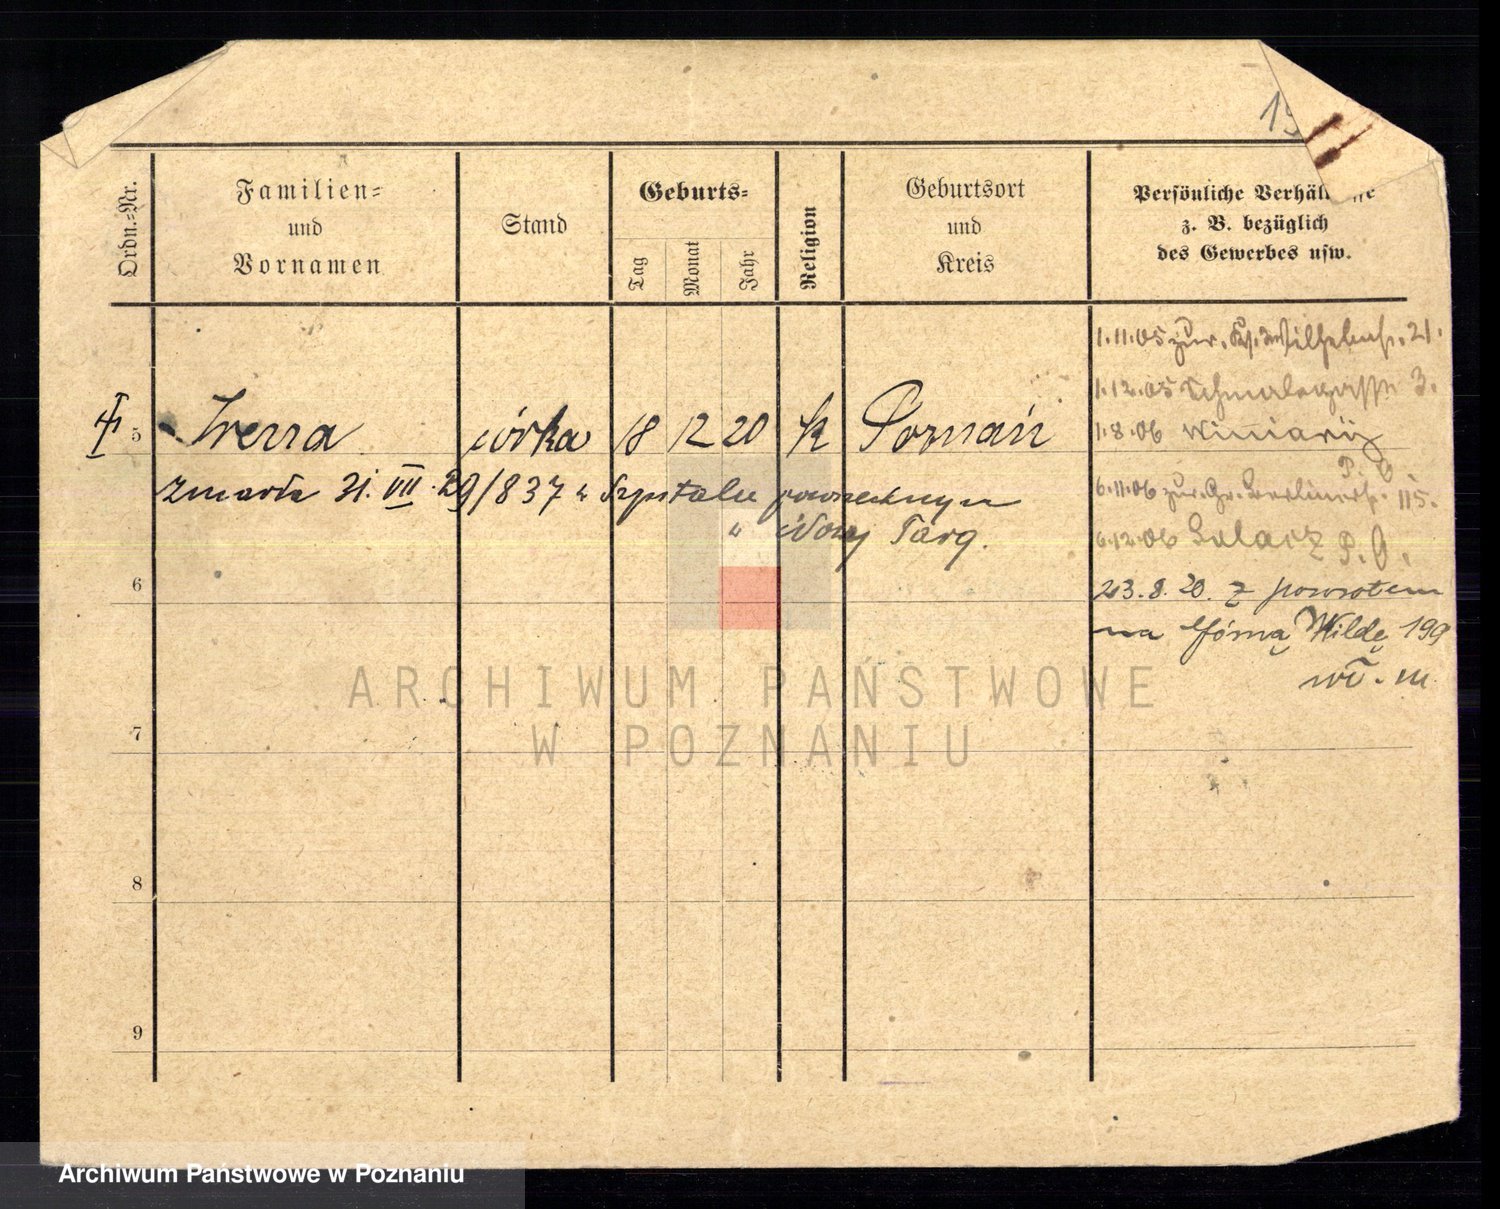 19
Ordn.-Nr.
Familien-
und
Vornamen
Stand
Geburts-
Tag
Monat
Jahr
Religion
Geburtsort
und
Kreis
Persönliche
z. B. bezüglich
des Gewerbes usw.
1.11.05 zur. Wilhelmstr. 21.
1.12.05 3.
5 Irena córka 18 12 20 k Poznań
1.8.06 Winiary
P. O.
zmarła 31. VII. 29/837 w Szpitalu powszechnym
6.11.06 zur. Gr. Berlinerstr. 115.
w Nowy Targ.
6.12.06 Solacz P. O.
6
23.8.20. z powrotem
na Górną Wildę 199
ARCHIWUM PAŃSTWOWE
W POZNANIU
7
8
9
Archiwum Państwowe w Poznaniu